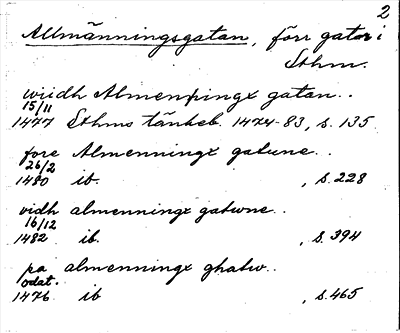 2
Allmänningsgatan, förr gata i
Sthm.
wiidh Almenningx gatan..
15/11
1477 Sthms tänkeb. 1474-83, s. 135
fore Almenningx gatune..
26/2
1480 ib. , s. 228
vidh almenningx gatwne..
16/12
1482 ib. , s. 394
pa almenningx ghatw..
odat.
1476 ib , s. 465